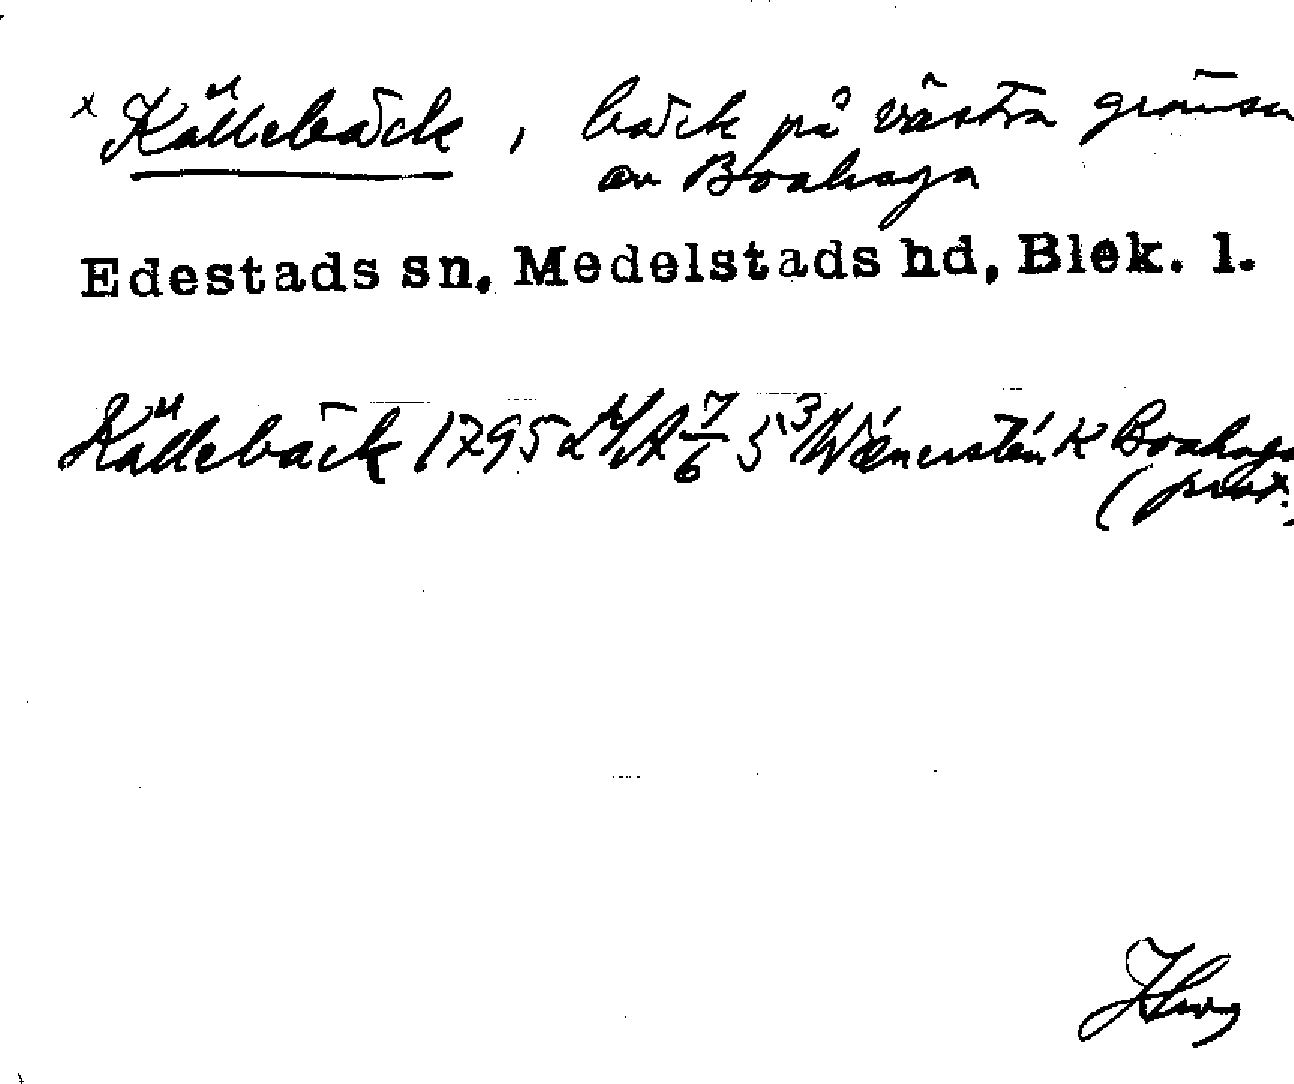 x Källebäck, bäck på västra gränsen
av Boahaga
Edestads sn, Medelstads hd, Blek. l.
Källebäck 1795 LMA 7/6 5 3 Wänersten K Boahaga
(prot.)